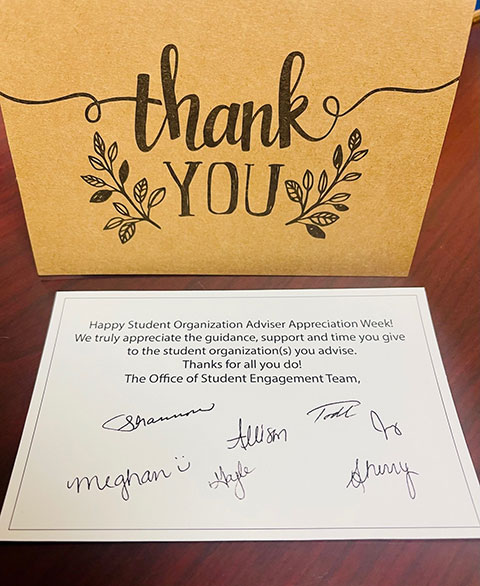 thank
YOU
Happy Student Organization Adviser Appreciation Week!
We truly appreciate the guidance, support and time you give
to the student organization(s) you advise.
Thanks for all you do!
The Office of Student Engagement Team,
Shannon
Allison
Todd
Meghan
Gayle
Sherry